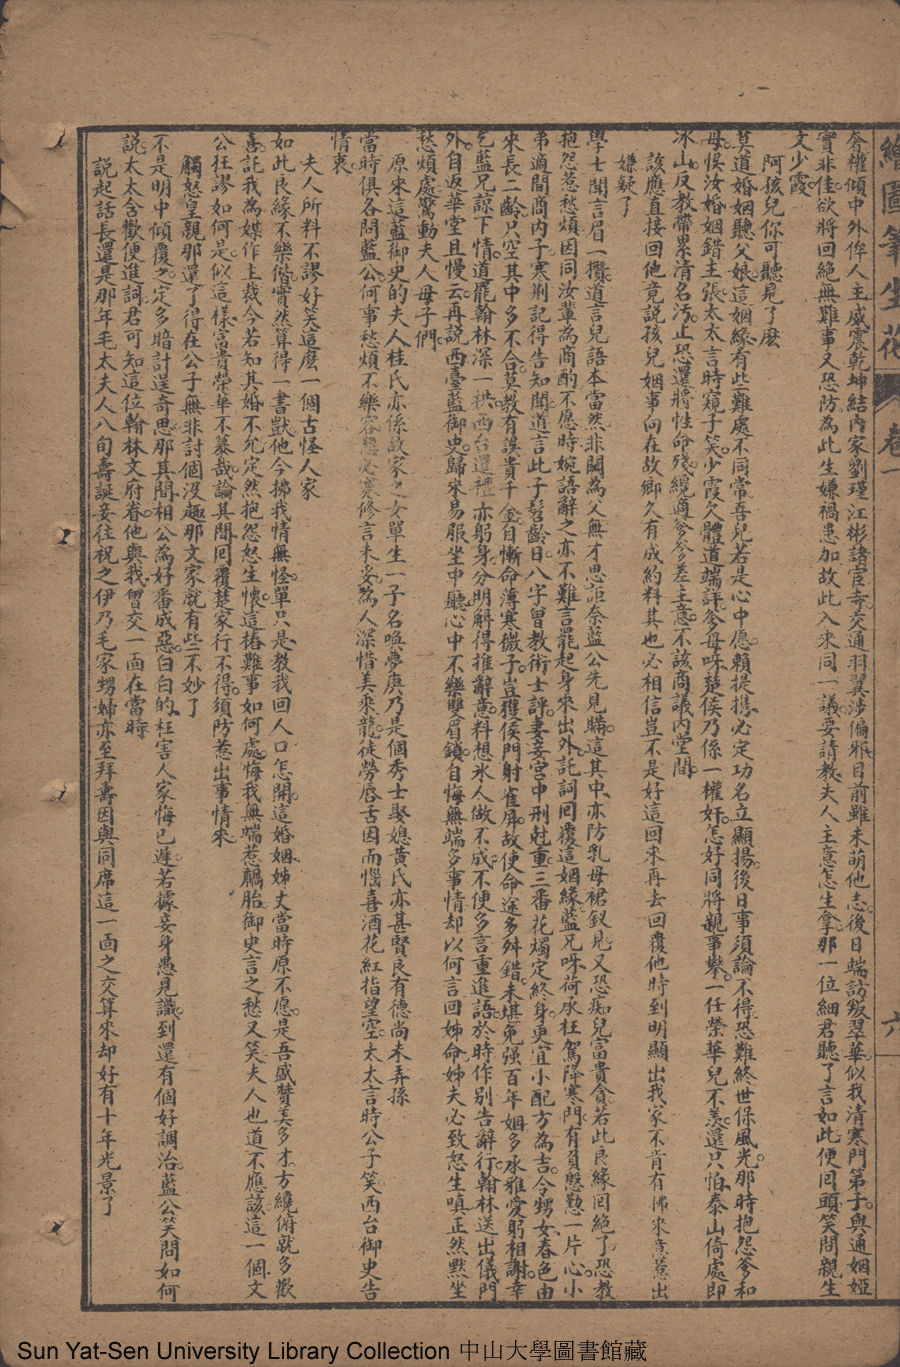 繪圖筆生花 卷一 六
奢權傾中外侔人主威震乾坤結內家劉瑾江彬諸宦寺交通羽翼涉偏邪目前雖未萌他志後日端訪叛翠華似我清寒門第子與通姻婭
實非佳欲將回絕無難事又恐防為此生嫌禍患加故此入來同一議要請教夫人主意怎生拿那一位細君聽了言如此便回頭笑問親生
文少霞
阿孩兒你可聽見了麼
莫道婚姻聽父娘這姻緣有些難處不同常吾兒若是心中愿賴提攜必定功名立顯揚後日事須論不得恐難終世保風光那時抱怨爹和
母悞汝婚姻錯主張太太言時窺子笑少霞久體道端詳爹母呀楚侯乃係一權奸怎好同將親事攀一任榮華兒不羨還只怕泰山倚處即
冰山反教帶累清名污止恐還將性命殘纔適爹爹差主意不該商議內堂間
該應直接回他竟說孩兒姻事向在故鄉久有成約料其也必相信豈不是好這回來再去回覆他時到明顯出我家不肯有拂來意惹出
嫌疑了
學士聞言眉一攢道言兒語本當然非關為父無才思詎奈藍公先見瞞這其中亦防乳母裙釵見又恐痴兒富貴貪若此良緣回絕了恐教
抱怨惹愁煩因同汝輩為商酌不愿時婉語辭之亦不難言罷起身來出外託詞回覆這姻緣藍兄呀荷承枉駕降寒門有負慇懃一片心小
弟適間商內子寒荊記得告知聞道言此子髫齡日八字曾教術士評妻妾宮中刑尅重三番花燭定終身更宜小配方為吉令甥女春色由
來長二齡只空其中多不合莫教有誤貴千金自慚命薄寒微子豈獲侯門射雀屏故使命途多舛錯未堪勉强百年姻多承雅愛躬相謝幸
乞藍兄諒下情道罷翰林深一拱西台還禮亦躬身分明解得推辭意料想氷人做不成不便多言重進語於時作別告辭行翰林送出儀門
外自返華堂且慢云再說西臺藍御史歸來易服坐中聽心中不樂雙眉鎖自悔無端多事情却以何言回姊命姊夫必致怒生嗔正然默坐
愁煩處驚動夫人母子們
原來這藍御史的夫人桂氏亦係故家之女單生一子名喚夢庚乃是個秀士娶媳黃氏亦甚賢良有德尚未弄孫
當時俱各問藍公何事愁煩不樂容想必寒修言未妥為人深惜美來龍徒勞唇舌因而惱喜酒花紅指望空太太言時公子笑西台御史告
情衷
夫人所料不謬好笑這麼一個古怪人家
如此良緣不樂偕實然算得一書獃他今拂我情無怪單只是教我回人口怎開這婚姻姊丈當時原不愿是吾盛贊美多才方纔俯就多歡
喜託我為媒作主裁今若知其婚不允定然抱怨怒生懷這樁難事如何處悔我無端惹鷉胎御史言之愁又笑夫人也道不應該這一個文
公狂謬如何是似這樣富貴榮華不慕哉論其間回覆楚家行不得須防惹出事情來
觸怒皇親那還了得在公子無非討個沒趣那文家就有些不妙了
不是明中傾覆之定多暗討逞奇思那其間相公為好番成惡白白的枉害人家悔已遲若據妾身愚見識到還有個好調治藍公笑問如何
說太太含歡便進詞君可知這位翰林文府眷他與我曾交一面在當時
說起話長還是那年毛太夫人八旬壽誕妾往祝之伊乃毛家甥婦亦至拜壽因與同席這一面之交算來却好有十年光景了
Sun Yat-Sen University Library Collection 中山大學圖書館藏